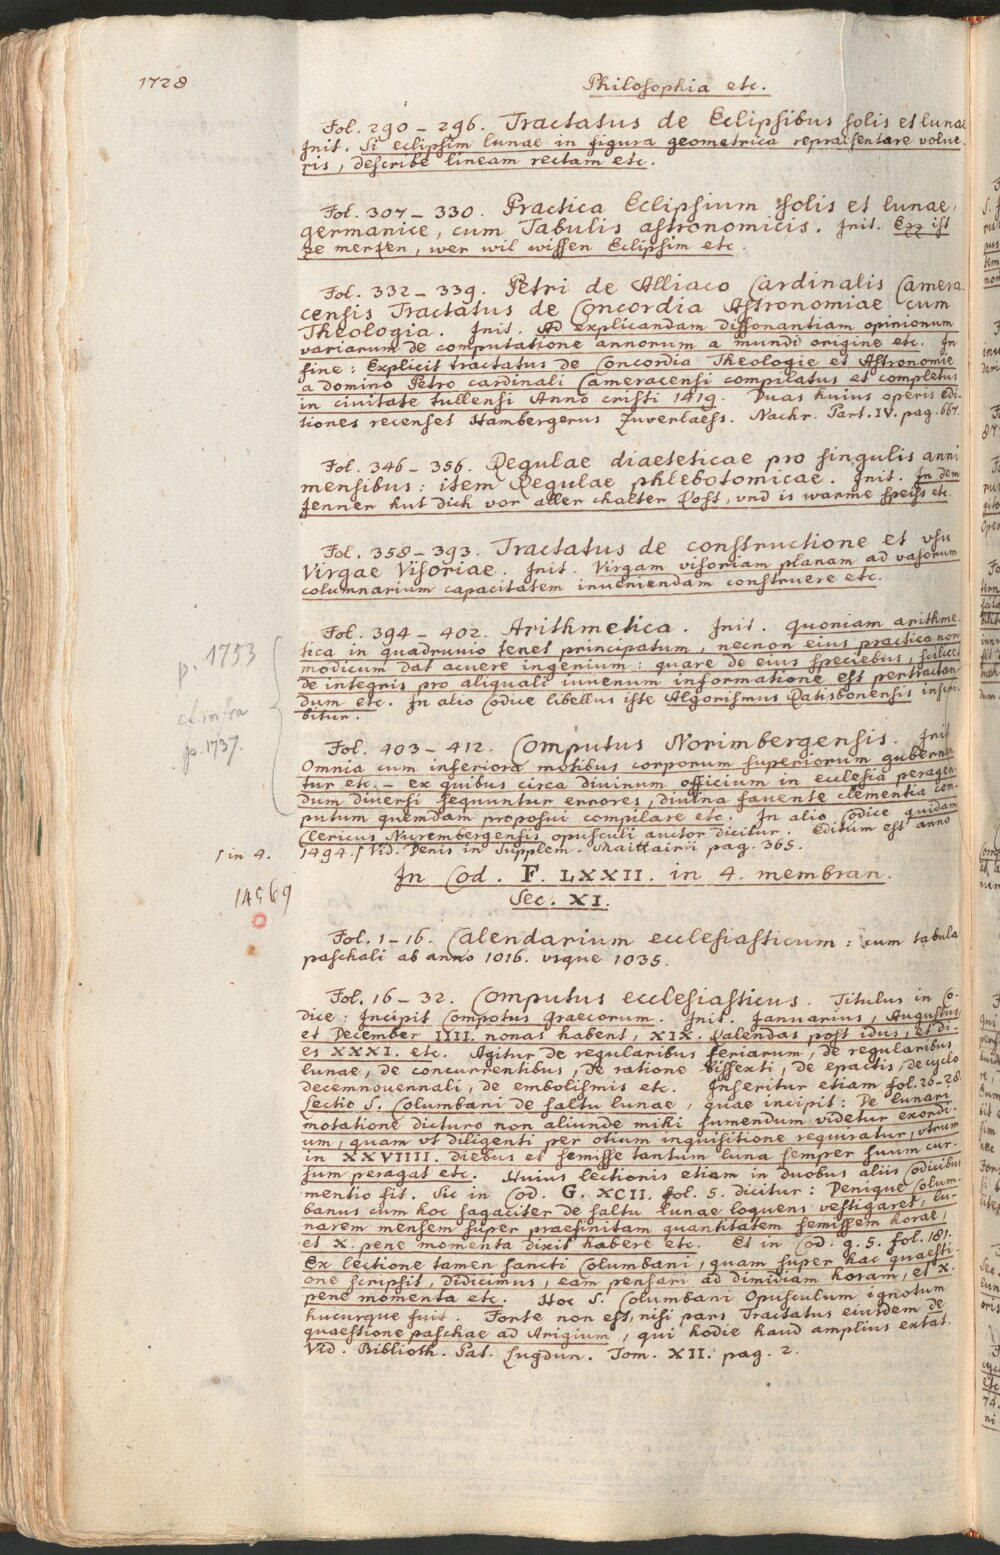 1728
Philosophia etc.
Fol. 290 – 296. Tractatus de Eclipsibus solis et lunae
Init. Si eclipsim lunae in figura geometrica repraesentare volue-
ris, describe lineam rectam etc.
Fol. 307 – 330. Practica Eclipsium solis et lunae,
germanice, cum Tabulis astronomicis. Init. Ezz ist
ze merken, wer wil wissen Eclipsim etc.
Fol. 332 – 339. Petri de Alliaco Cardinalis Camera-
censis Tractatus de Concordia Astronomiae cum
Theologia. Init. Ad explicandam dissonantiam opinionum
variarum de computatione annorum a mundi origine etc. In
fine: Explicit tractatus de Concordia Theologie et Astronomie
a domino Petro cardinali Cameracensi compilatus et completus
in civitate tullensi Anno cristi 1419. Duas huius operis edi-
tiones recenset Hambergerus Zuverlaess. Nachr. Part. IV. pag. 667.
Fol. 346 – 356. Regulae diaeteticae pro singulis anni
mensibus: item Regulae phlebotomicae. Init. In dem
Jenner hut dich vor aller chalter Kost, vnd is warme speiss etc.
Fol. 358 – 393. Tractatus de constructione et vsu
Virgae Visoriae. Init. Virgam visoriam planam ad vasorum
columnarium capacitatem inveniendam construere etc.
Fol. 394 – 402. Arithmetica. Init. quoniam arithme-
tica in quadruuio tenet principatum, necnon eius practica non
modicum dat acuere ingenium: quare de eius speciebus, scilicet
de integris pro aliquali iuuenum informatione est pertractan-
dum etc. In alio Codice libellus iste Algorismus Ratisbonensis inscri-
bitur.
p. 1753
cf. infra
p. 1737.
Fol. 403 – 412. Computus Norimbergensis. Init
Omnia cum inferiora motibus corporum superiorum gubernan-
tur etc. – ex quibus circa divinum officium in ecclesia peragen-
dum diversi sequuntur errores, divina favente clementia com-
putum quemdam proposui compilare etc. In alio Codice quidam
Clericus Nurembergensis opusculi auctor dicitur. Editum est anno
1494.⌠ Vid. Denis in Supplem. Maittairii pag. 365.
⌠ in 4.
In Cod. F. LXXII. in 4. membran.
Sec. XI.
14569
Fol. 1–16. Calendarium ecclesiasticum: cum tabula
paschali ab anno 1016. vsque 1035.
Fol. 16 – 32. Computus ecclesiasticus. Titulus in Co-
dice: Incipit Compotus Graecorum. Init. Januarius, Augustus
et December IIII. nonas habent, XIX. Kalendas post idus, et di-
es XXXI. etc. Agitur de regularibus feriarum, de regularibus
lunae, de concurrentibus, de ratione bissexti, de epactis, de cyclo
decemnouennali, de embolismis etc. Inseritur etiam fol. 26–28
Lectio S. Columbani de saltu lunae, quae incipit: De lunari
motatione dicturo non aliunde mihi sumendum videtur exordi-
um, quam vt diligenti per otium inquisitione requiratur, vtrum
in XXVIIII. diebus et semisse tantum luna semper suum cur-
sum peragat etc. Huius lectionis etiam in duobus aliis Codicibus
mentio fit. Sic in Cod. G. XCII. fol. 5. dicitur: Denique Colum-
banus cum hoc sagaciter de saltu lunae loquens vestigaret, lu-
narem mensem super praefinitam quantitatem semissem horae,
et X. pene momenta dixit habere etc. Et in Cod. g. 5. fol. 181.
Ex lectione tamen sancti Columbani, quam super hac quaesti-
one scripsit, didicimus, eam pensari ad dimidiam horam, et X.
pene momenta etc. Hoc S. Columbani Opusculum ignotum
hucusque fuit. Forte non est, nisi pars Tractatus eiusdem de
quaestione paschae ad Arigium, qui hodie haud amplius extat.
Vid. Biblioth. Pat. Lugdun. Tom. XII. pag. 2.